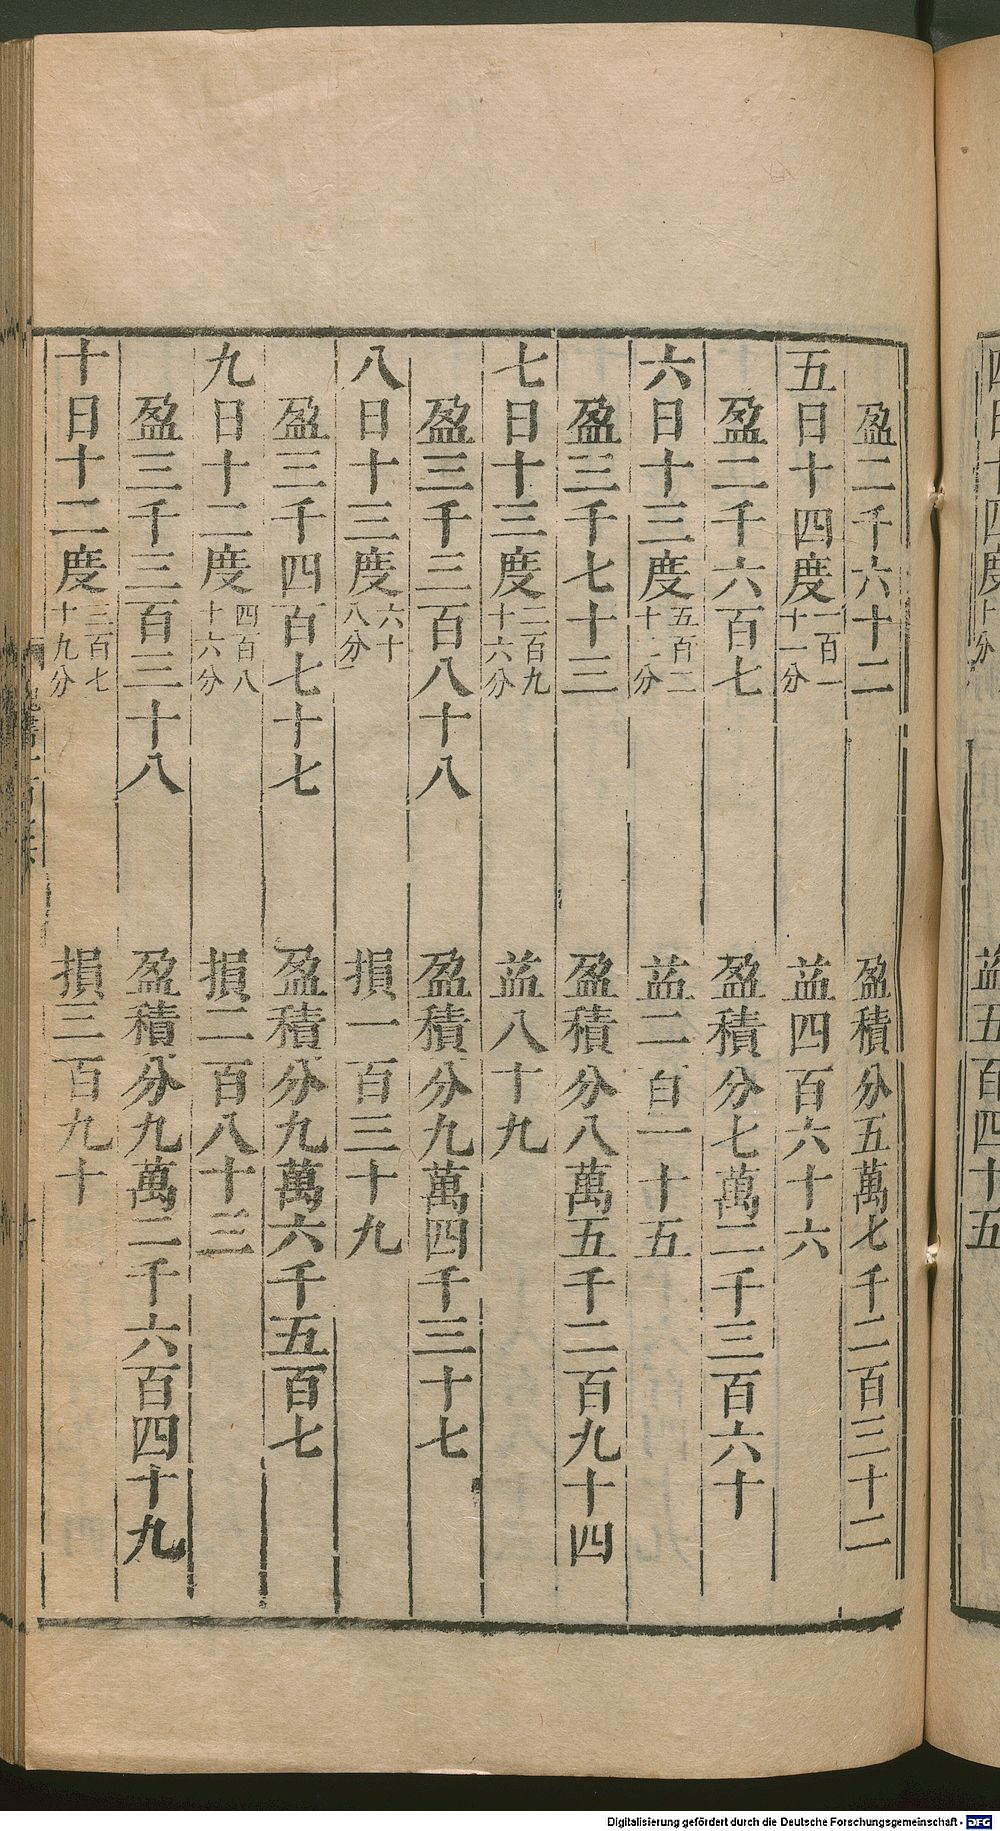 益五百四十五
盈二千六十二　盈積分五萬七千二百三十二
五日十四度一百一十一分　益四百六十六
盈二千六百七　盈積分七萬二千三百六十
六日十三度五百二十分　益二百一十五
盈三千七十三　盈積分八萬五千二百九十四
七日十三度二百九十六分　益八十九
盈三千三百八十八　盈積分九萬四千三十七
八日十三度六十八分　損一百三十九
盈三千四百七十七　盈積分九萬六千五百七
九日十二度四百八十六分　損二百八十三
盈三千三百三十八　盈積分九萬二千六百四十九
十日十二度三百七十九分　損三百九十
Digitalisierung gefördert durch die Deutsche Forschungsgemeinschaft - DFG